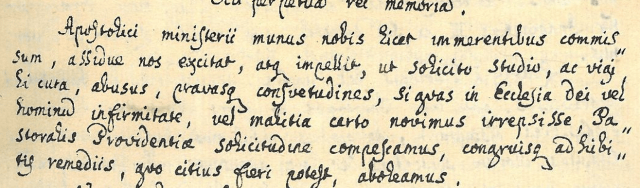 perpetua rei memoria.
Apostolici ministerii munus nobis licet immerentibus commis„
sum, assidue nos excitat, atq impellit, ut solicito studio, ac vigi„
li cura, abusus, pravasq consvetudines, si quas in Ecclesia Dei vel
hominũ infirmitate, vel malitia carto novimus irrepsisse, Pa„
storalis Providentiæ solicitudine compescamus, congruisq adhibi„
tis remediis, quo citius fieri potest, aboleamus.